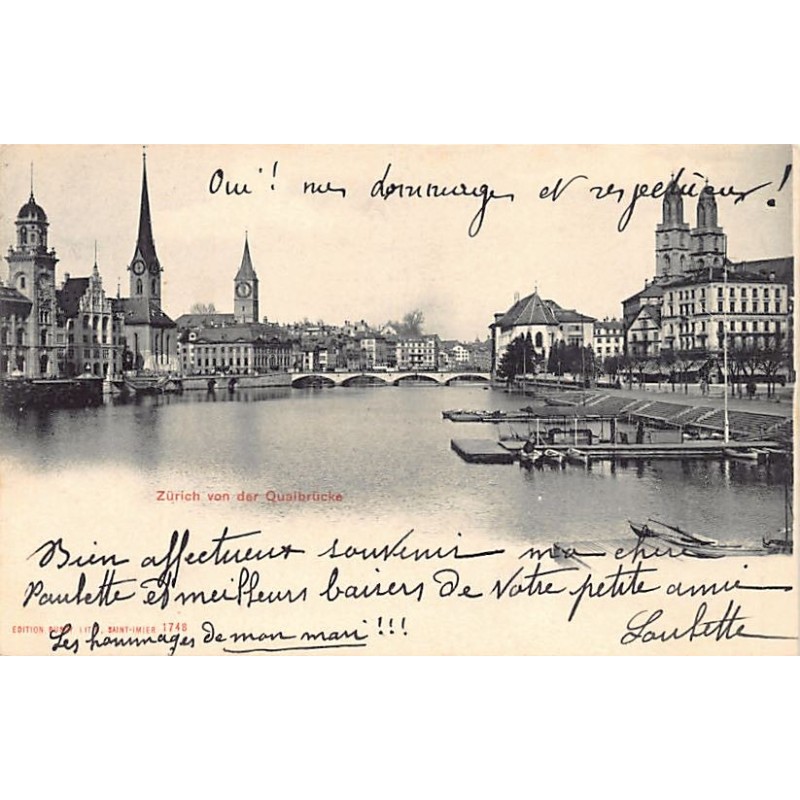 Oui ! mes hommages et respectueux !
Zürich von der Quaibrücke
Bien affectueux souvenir ma chère
Paulette et meilleurs baisers de Votre petite amie
EDITION LITH, SAINT-IMIER 1748
Les hommages de mon mari !!!
Loulette